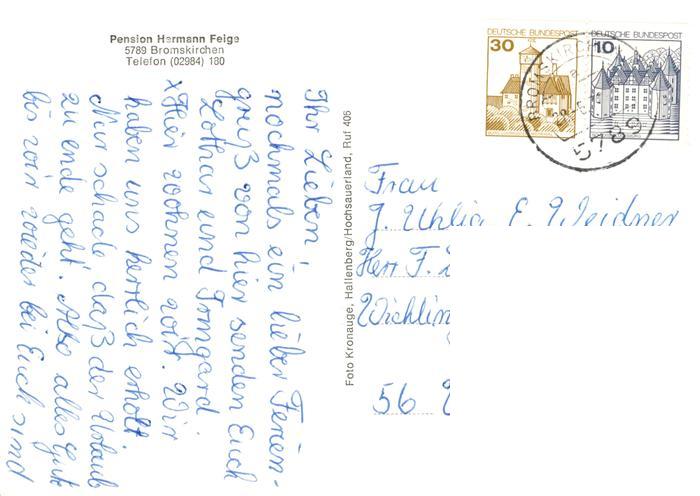 Pension Hermann Feige
5789 Bromskirchen
Telefon (02984) 180
Ihr Lieben,
nochmals ein lieber Ferien-
gruß von hier senden Euch
Lothar und Irmgard
x Hier wohnen wir. Wir
haben uns herrlich erholt.
Nur schade daß der Urlaub
zu ende geht. Also alles Gute
bis wir wieder bei Euch sind
Foto Kronauge, Hallenberg/Hochsauerland, Ruf 406
30 DEUTSCHE BUNDESPOST
10 DEUTSCHE BUNDESPOST
5789
Frau
J. Uhlig E. Weidner
Herr F.
56